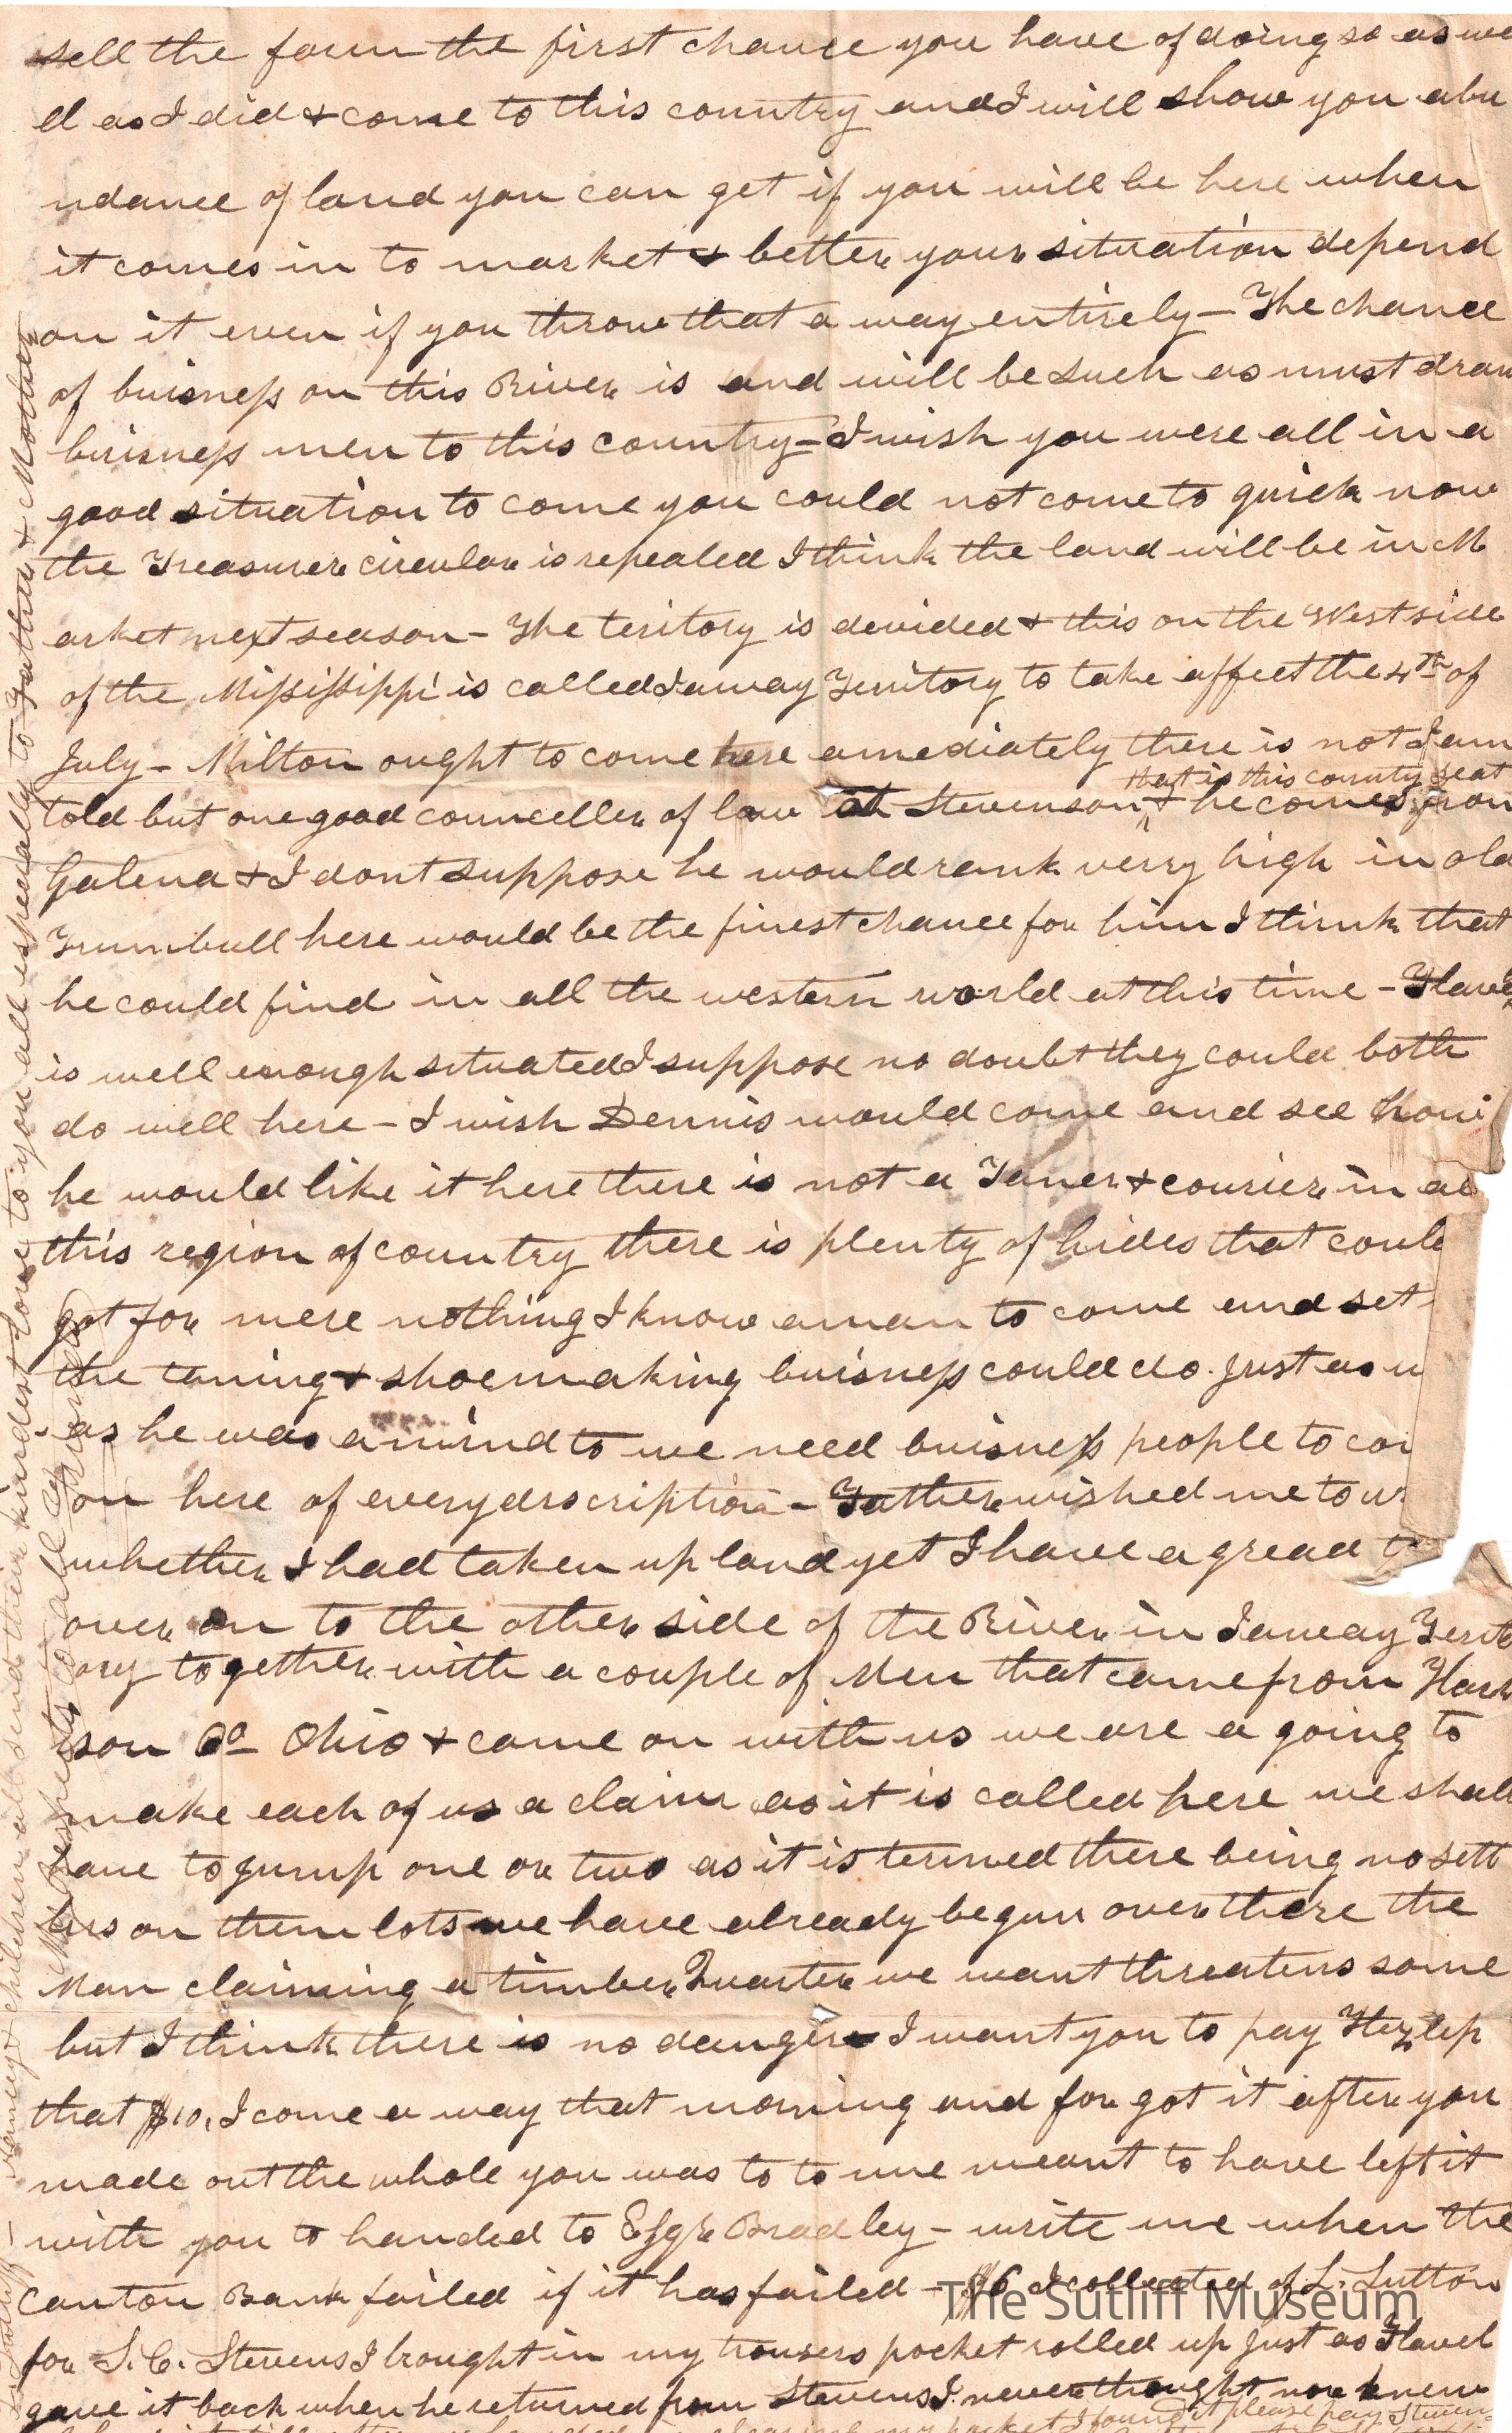 sell the farm the first chance you have of doing so as we
ll as I did & come to this country and I will show you abu
ndance of land you can get if you will be here when
it comes in to market & better your situation depend
on it even if you throw that a way entirely – The chance
of buisness on this River is and will be such as must draw
buisness men to this country – I wish you were all in a
good situation to come you could not come to quick now
the Treasurer circular is repealed I think the land will be in M
arket next season – The teritory is devided & this on the West side
of the Mississippi is called Iaway Territory to take affect the 4th of
July – Milton ought to come here amediately there is not I am
that is this county seat
told but one good counceller of law at Stevenson & he comes from
Galena & I dont suppose he would rank verry high in old
Trumbull here would be the finest chance for him I think that
he could find in all the western world at this time – Flavel
is well enough situated I suppose no doubt they could both
do well here – I wish Dennis would come and see how
he would like it here there is not a Taner & courier in al
this region of country there is plenty of hides that coul
got for mere nothing I know a man to come and set
the taning & shoemaking buisness could do just as w
as he was a mind to we need buisness people to co
on here of every discription – Father wished me to w
whether I had taken up land yet I have agread t
over on to the other side of the River in Iaway Territ
ory together with a couple of Men that came from Harr
ison Co Ohio & came on with us we are a going to
make each of us a claim as it is called here we shall
have to jump one or two as it is termed there being no sett
lers on them lots we have already begun over there the
Man claiming a timber Quarter we want threatens some
but I think there is no danger – I want you to pay Hezlep
that $10, I come a way that morning and for got it after you
made out the whole you was to to me meant to have left it
with you to handed to Esqr Bradley – write me when the
Canton Bank failed if it has failed – $6 I collected of L. Sutton
for S. C. Stevens I brought in my trousers pocket rolled up just as Flavel
gave it back when he returned from Stevens I never thought nor knew
my pocket I found it please pay Steven
Nancy & children all send their kindest love to you all especially to Father & Mother
My Respects to all my friends
The Sutliff Museum